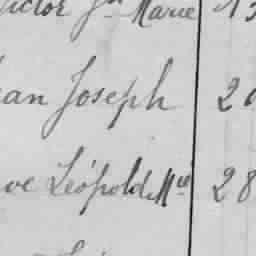 Victor Jh Marie 13
ean Joseph 20
ve Léopold Mie 28